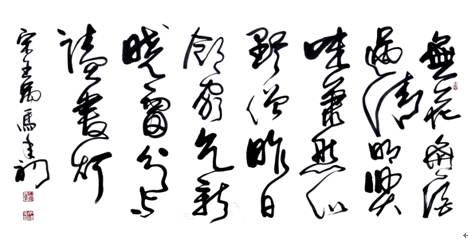 無花無酒
過清明興
味蕭然似
野僧昨日
鄰家乞新
曉窗分与
讀書灯
宋王禹馬